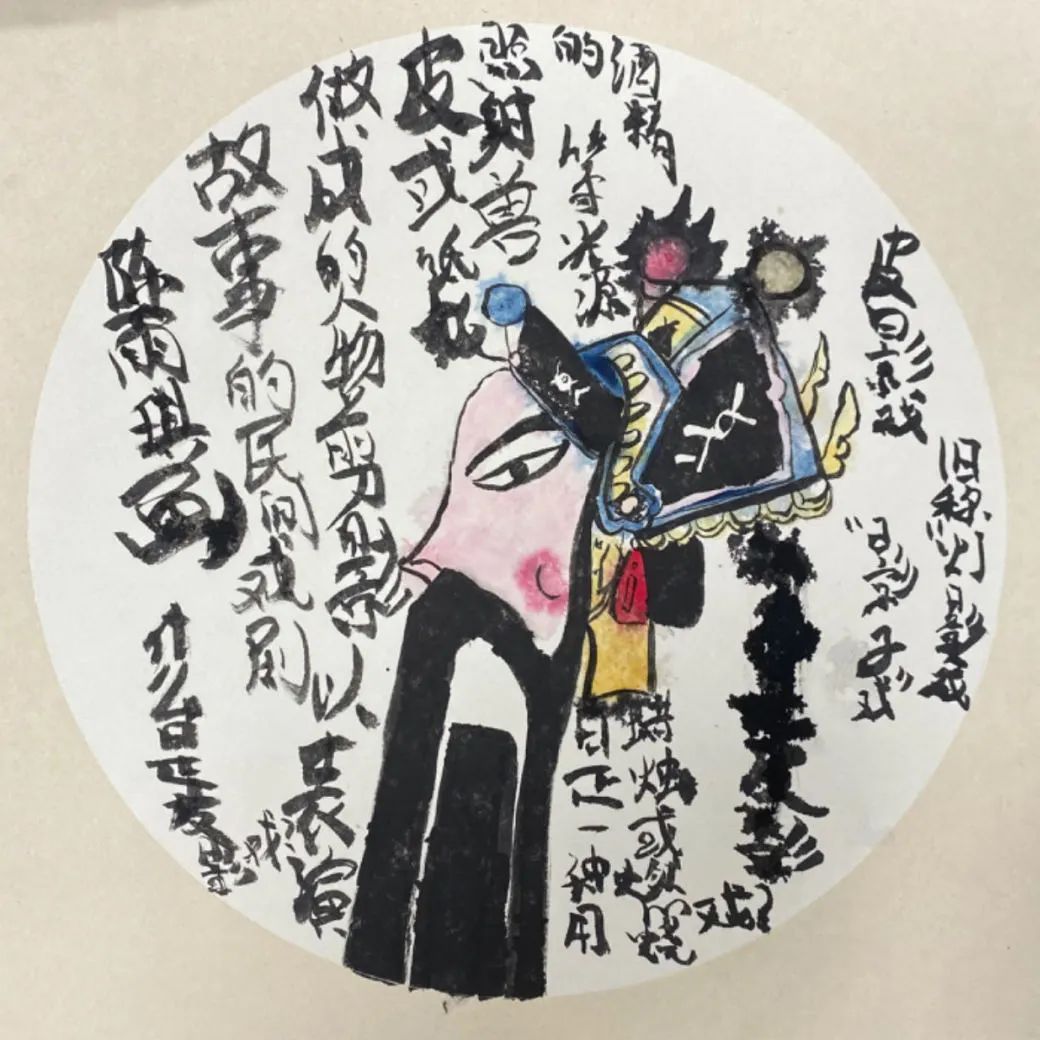 皮影戏
旧称“灯影戏
“影子戏”
皮影戏
是一种用
蜡烛或燃烧
的酒精
等光源
照射兽
皮或纸板
做成的人物剪影以表演
故事的民间戏剧
陈雨琪画
皮影戏